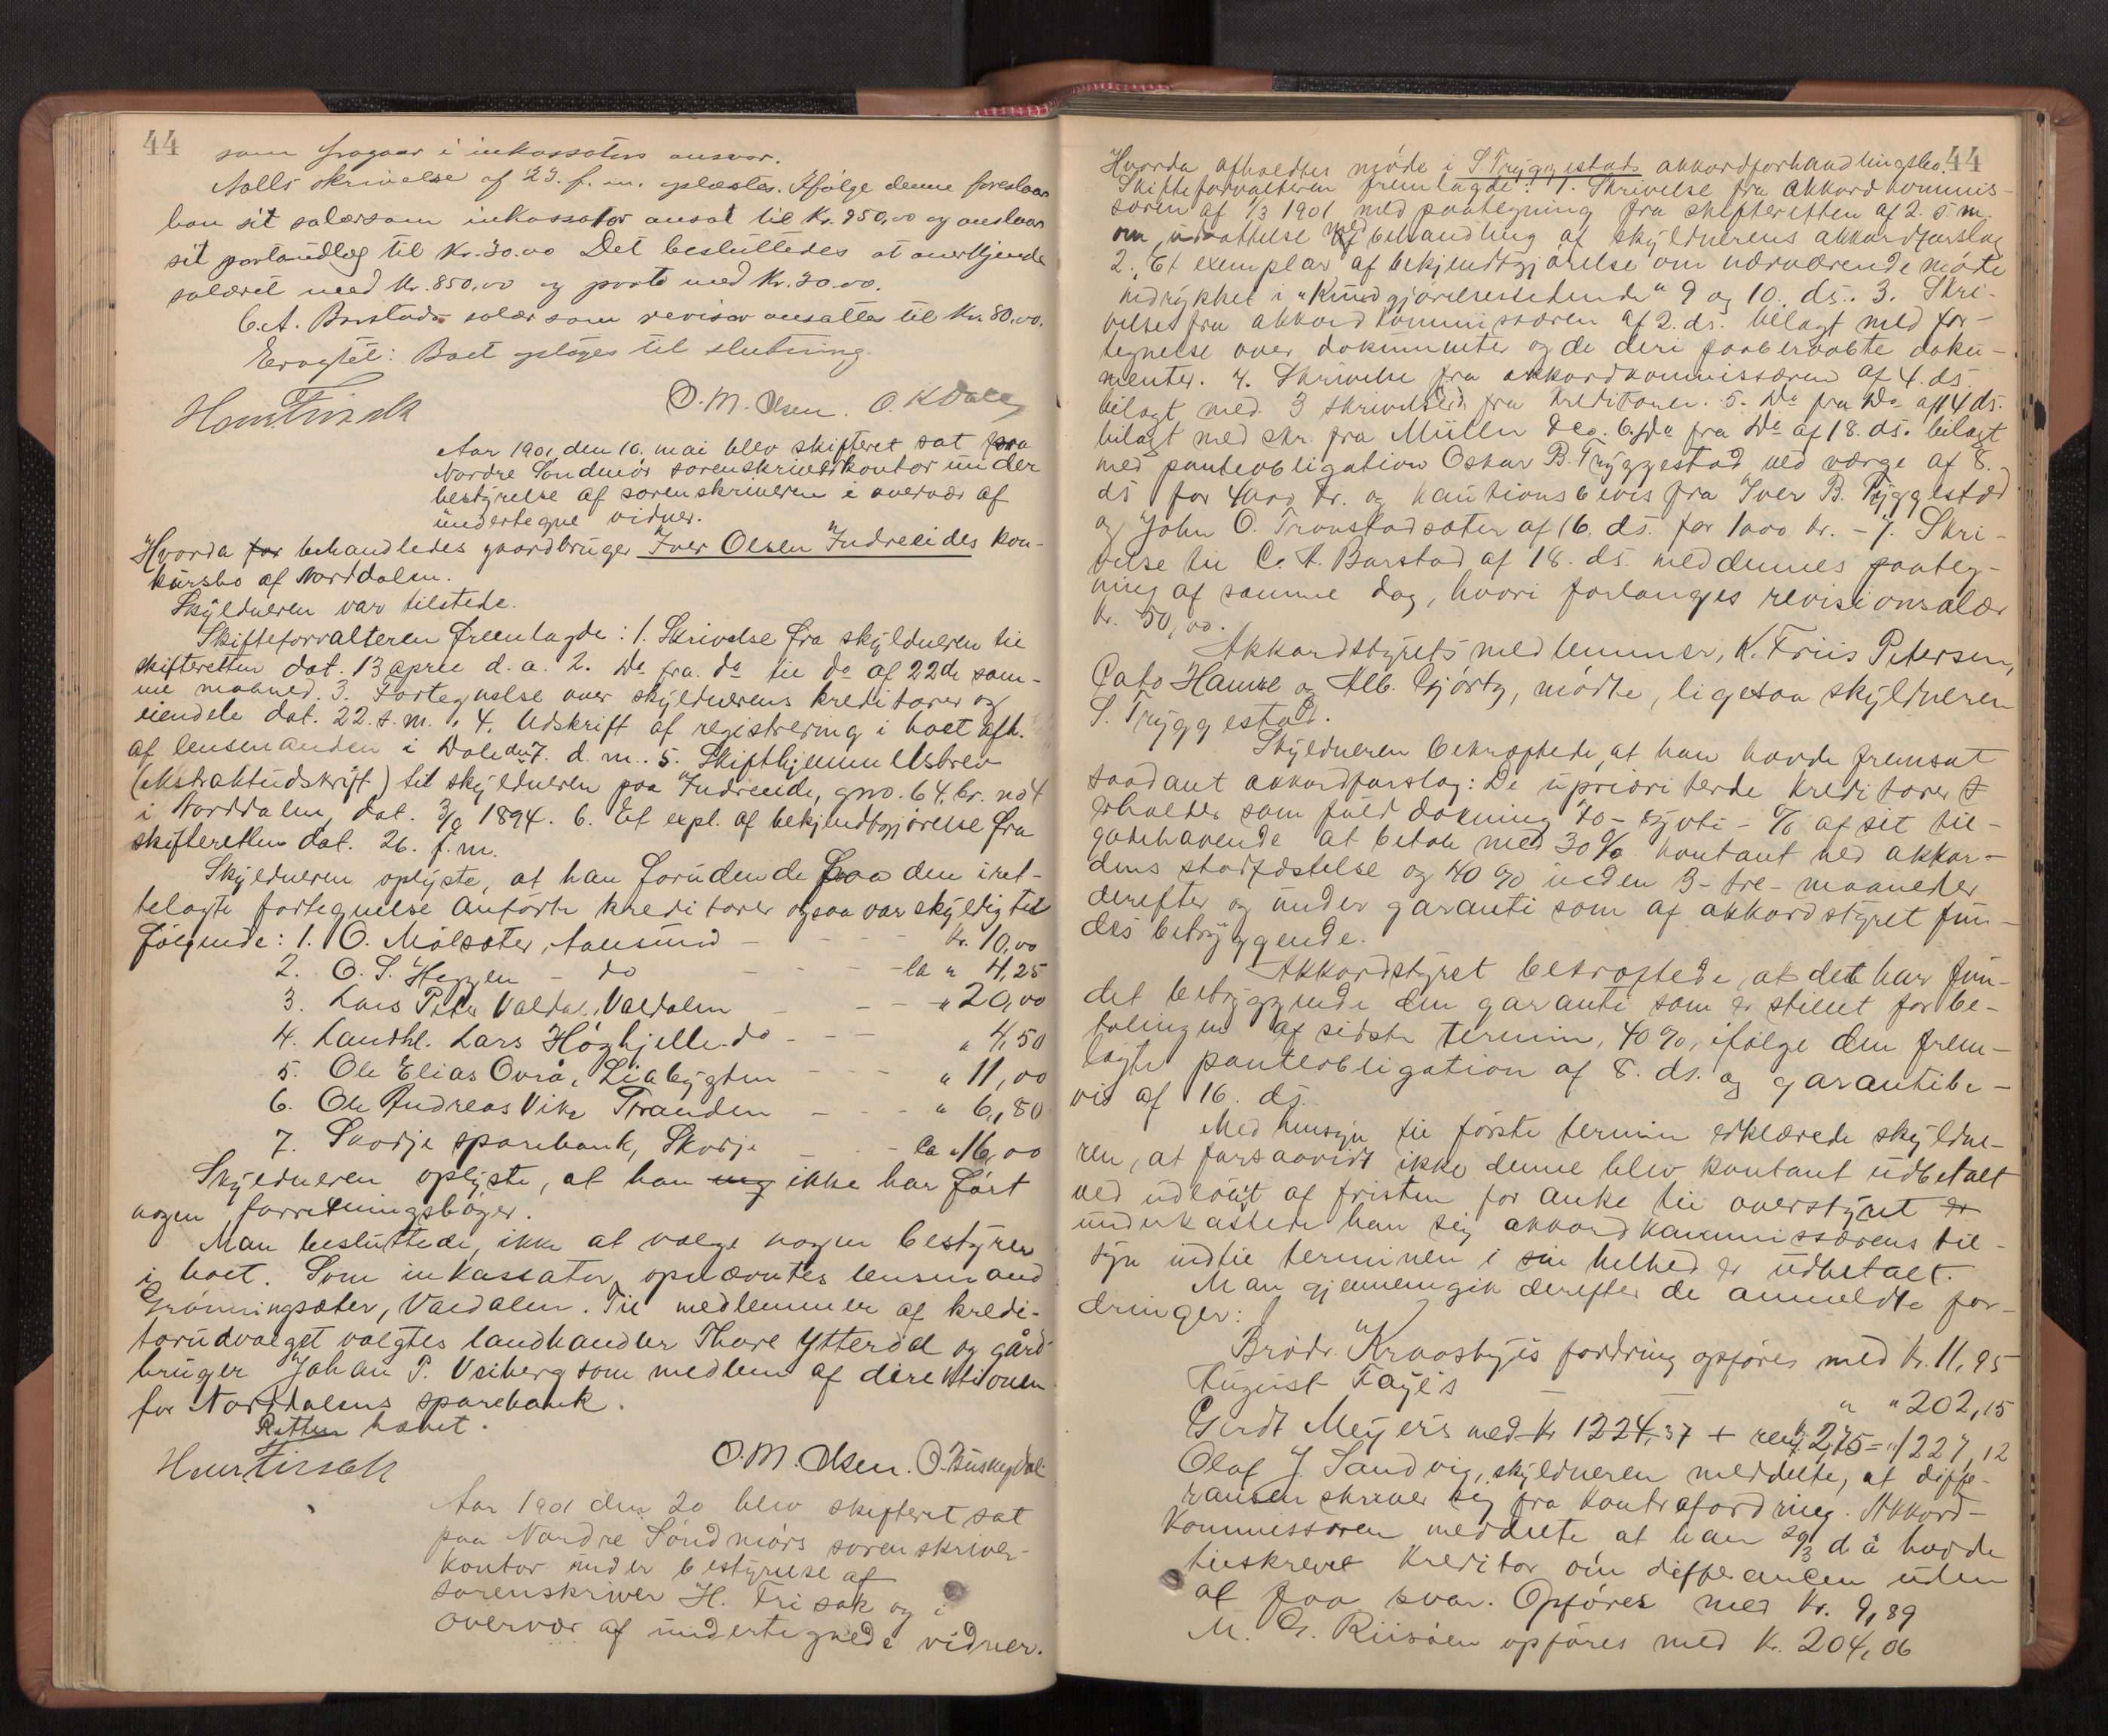 44
som fragaar i inkassators ansvar.
Aalls skrivelse af 23. f. m. oplæstes. Ifølge denne foreslaar
han sit salær som inkassator ansat til Kr. 950,00 og anslaar
sit portoudlæg til Kr. 30.00 Det besluttedes at anerkjende
salæret med Kr. 850,00 og porto med Kr. 30.00.
C. A. Barstads salær som revisor ansattes til Kr. 80,00.
Eragtet: Boet optages til slutning.
O. M. Olsen. O.
Aar 1901 den 10. mai blev skifteret sat paa
Nordre Søndmørs sorenskriverkontor under
bestyrelse af sorenskriveren i overvær af
undertegne vidner.
Hvorda for behandledes gaardbruger Iver Olsen Indreeides kon-
kursbo af Norddalen.
Skyldneren var tilstede.
Skifteforvalteren fremlagde: 1. Skrivelse fra skyldneren til
skifteretten dat. 13 april d. a. 2. Do fra do til do af 22de sam-
me maaned. 3. Fortegnelse over skyldnerens kreditorer og
eiendele dat. 22. s. m. 4. Udskrift af registrering i boet afh.
af lensmanden i Dale den 7. d. m. 5. Skifthjemmelsbrev
(ekstraktudskrift) til skyldneren paa Indreeide, gno. 64, br. no 4
i Norddalen, dat. 3/9 1894. 6. Et expl. af bekjendtgjørelse fra
skifteretten dat. 26. f. m.
Skyldneren oplyste, at han foruden de paa den iret-
telagte fortegnelse anførte kreditorer ogsaa var skyldig til
følgende: 1. O. Målsæter, Aalesund - - - - kr. 10,00
2. O. S. Heggen - do - - - - ca " 4,25
3. Lars Peter Valdal, Valdalen - - - " 20,00
4. Landhl. Lars Høghjelle do - - - " 4,50
5. Ole Elias Ovrå, Liabygden - - - " 11,00
6. Ole Andreas Vike Stranden - - - " 6,80
7. Skodje sparebank, Skodje - - - ca " 16,00
Skyldneren oplyste, at han ikke har ført
nogen forretningsbøger.
Man besluttede, ikke at vælge nogen bestyrer
i boet. Som inkassator opnævntes lensmand
Grønningsæter, Valdalen. Til medlemmer af kredi-
torudvalget valgtes landhandler Thore Ytterdal og gård-
bruger Johan P. Veiberg som medlem af direktionen
for Norddalens sparebank.
Retten hævet.
O. M. Olsen. O. Buskedal
Aar 1901 den 20 blev skifteret sat
paa Nordre Søndmørs sorenskriver-
kontor under bestyrelse af
sorenskriver H. Frisak og i
overvær af undertegnede vidner.
44
Hvorda afholdtes møde i S. Tryggestads akkordforhandlingsbo.
Skifteforvalteren fremlagde: 1. Skrivelse fra akkordkommis-
særen af 1/3 1901 med paategning fra skifteretten af 2. s. m.
om udsættelse med behandling af skyldnerens akkordforslag
2. Et exemplar af bekjendtgjørelse om nærværende møde
indrykket i "Kundgjørelsestidende" 9 og 10. ds. 3. Skri-
velse fra akkordkommissæren af 2. ds. bilagt med for-
tegnelse over dokumenter og de deri paaberaabte doku-
menter. 4. Skrivelse fra akkordkommissæren af 4. ds.
bilagt med 3 skrivelser fra kreditorer. 5. Do fra Do af 14 ds.
bilagt med skr. fra Müller & Co. 6. Do fra Do af 18. ds. bilagt
med panteobligation Oskar B. Tryggestad ved værge af 8.
ds for 4000 kr. og kautionsbevis fra Iver B. Tryggestad
og John O. Tronstadsæter af 16. ds. for 1000 kr. - 7. Skri-
velse til C. A. Barstad af 18. ds. med dennes paateg-
ning af samme dag, hvori forlanges revisionsalær
kr. 50,00.
Akkordstyrets medlemmer, K. Friis Petersen,
Cato Hamre og Alb. Gjørtz, mødte, ligesaa skyldneren
S. Tryggestad.
Skyldneren bekræftede, at han havde fremsat
saadant akkordforslag: De upriori terde kreditorer
erholder som fuld dækning 70 - sytti - % af sit til-
godehavende at betale med 30% kontant ved akkor-
dens stadfæstelse og 40% inden 3 - tre - maaneder
derefter og under garanti som af akkordstyret fun-
des betryggende.
Akkordstyret bekræftede, at det har fun-
det betryggende den garanti som er stillet for be-
talingen af sidste termin, 40%, ifølge den frem-
lagte panteobligation af 8. ds. og garantibe-
vis af 16. ds.
Med hensyn til første termin erklærede skyldne-
ren, at forsaavidt ikke denne blev kontant udbetalt
ved udløbet af fristen for anke til overstyret er
underkastede han sig akkordkommissærens til-
syn indtil terminen i sin helhed er udbetalt.
Man gjennemgik derefter de anmeldte for-
dringer:
Brødr. Kraasbyes fordring opføres med kr. 11,95
August Faye's - - " " 202,15
Gerdt Meyers med kr 1224,37 + rent. 2,75 = " 1227,12
Olaf J. Sandvig, skyldneren meddelte, at diffe-
ransen skriver sig fra kontrafordring. Akkord-
kommissæren meddelte at han 29/3 d å havde
tilskrevet kreditor om differancen uden
at faa svar. Opføres med kr. 9,89
M. G. Riisøen opføres med kr. 204,06